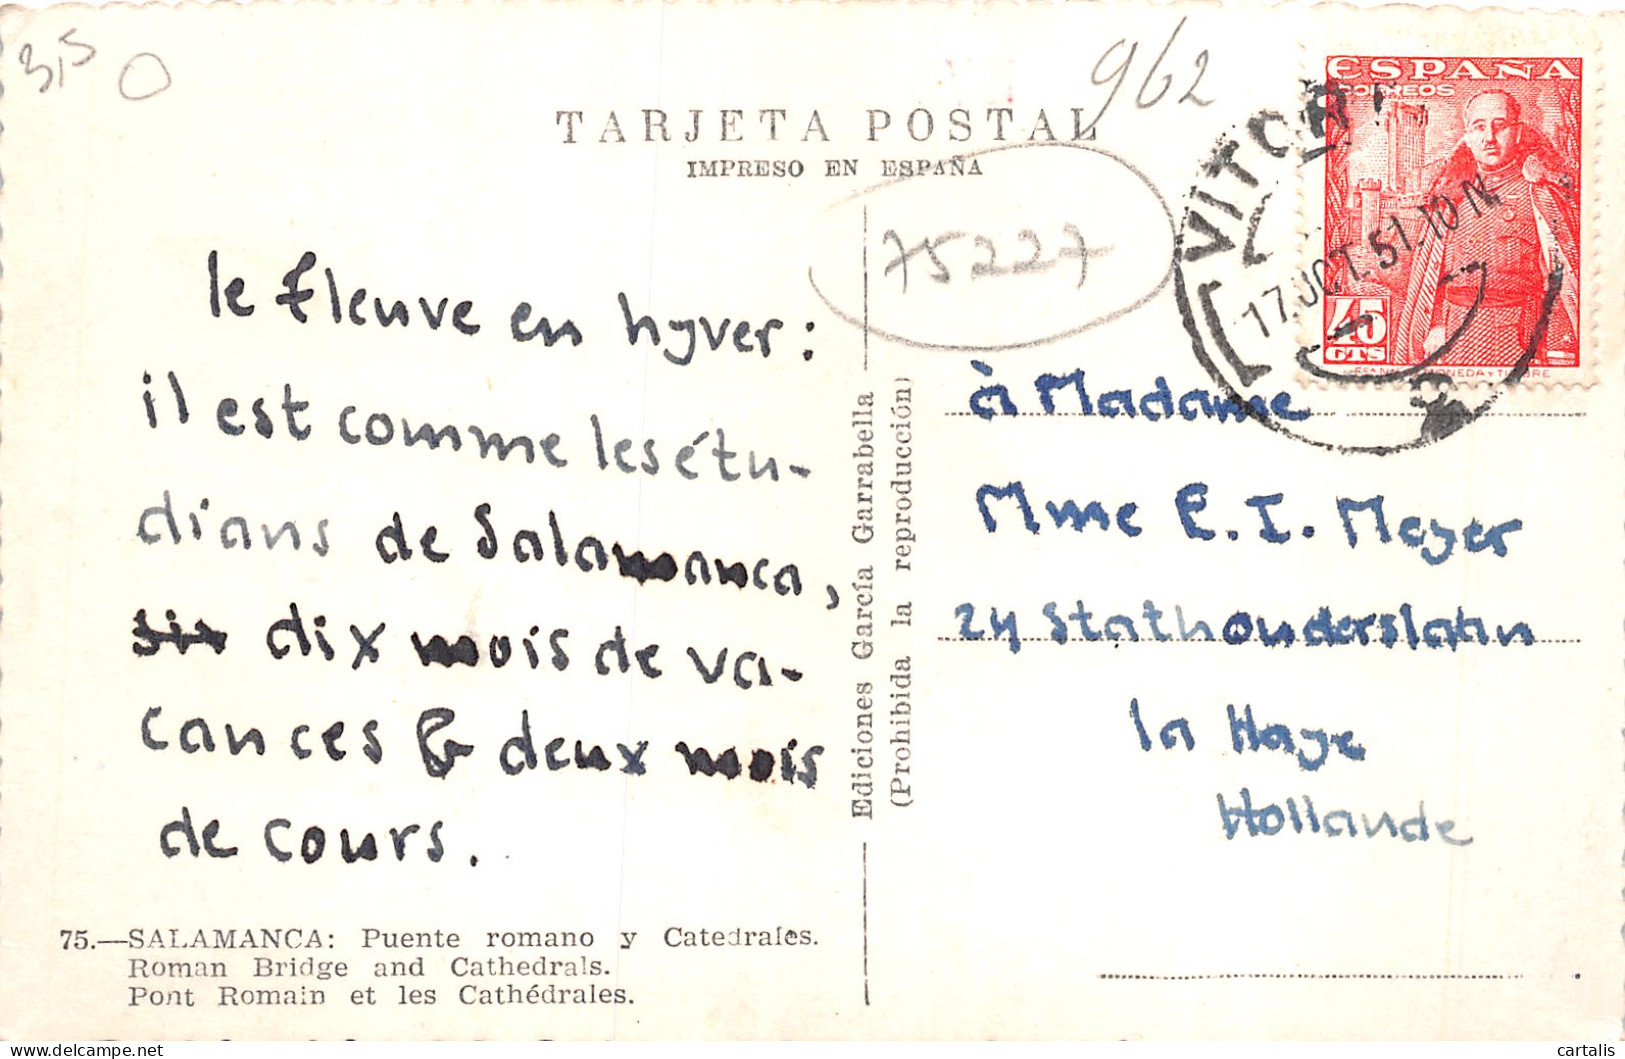 3,5 O
962
TARJETA POSTAL
IMPRESO EN ESPAÑA
75227
ESPAÑA
CORREOS
45
CTS
VITOR
17.OCT.51.10N
le fleuve en hyver:
il est comme les étu-
dians de Salamanca,
six dix mois de va-
cances & deux mois
de cours.
Ediciones García Garrabella
(Prohibida la reproducción)
à Madame
Mme E. I. Meyer
24 Stathouderslaan
la Haye
Hollande
75.—SALAMANCA: Puente romano y Catedrales.
Roman Bridge and Cathedrals.
Pont Romain et les Cathédrales.
cartalis